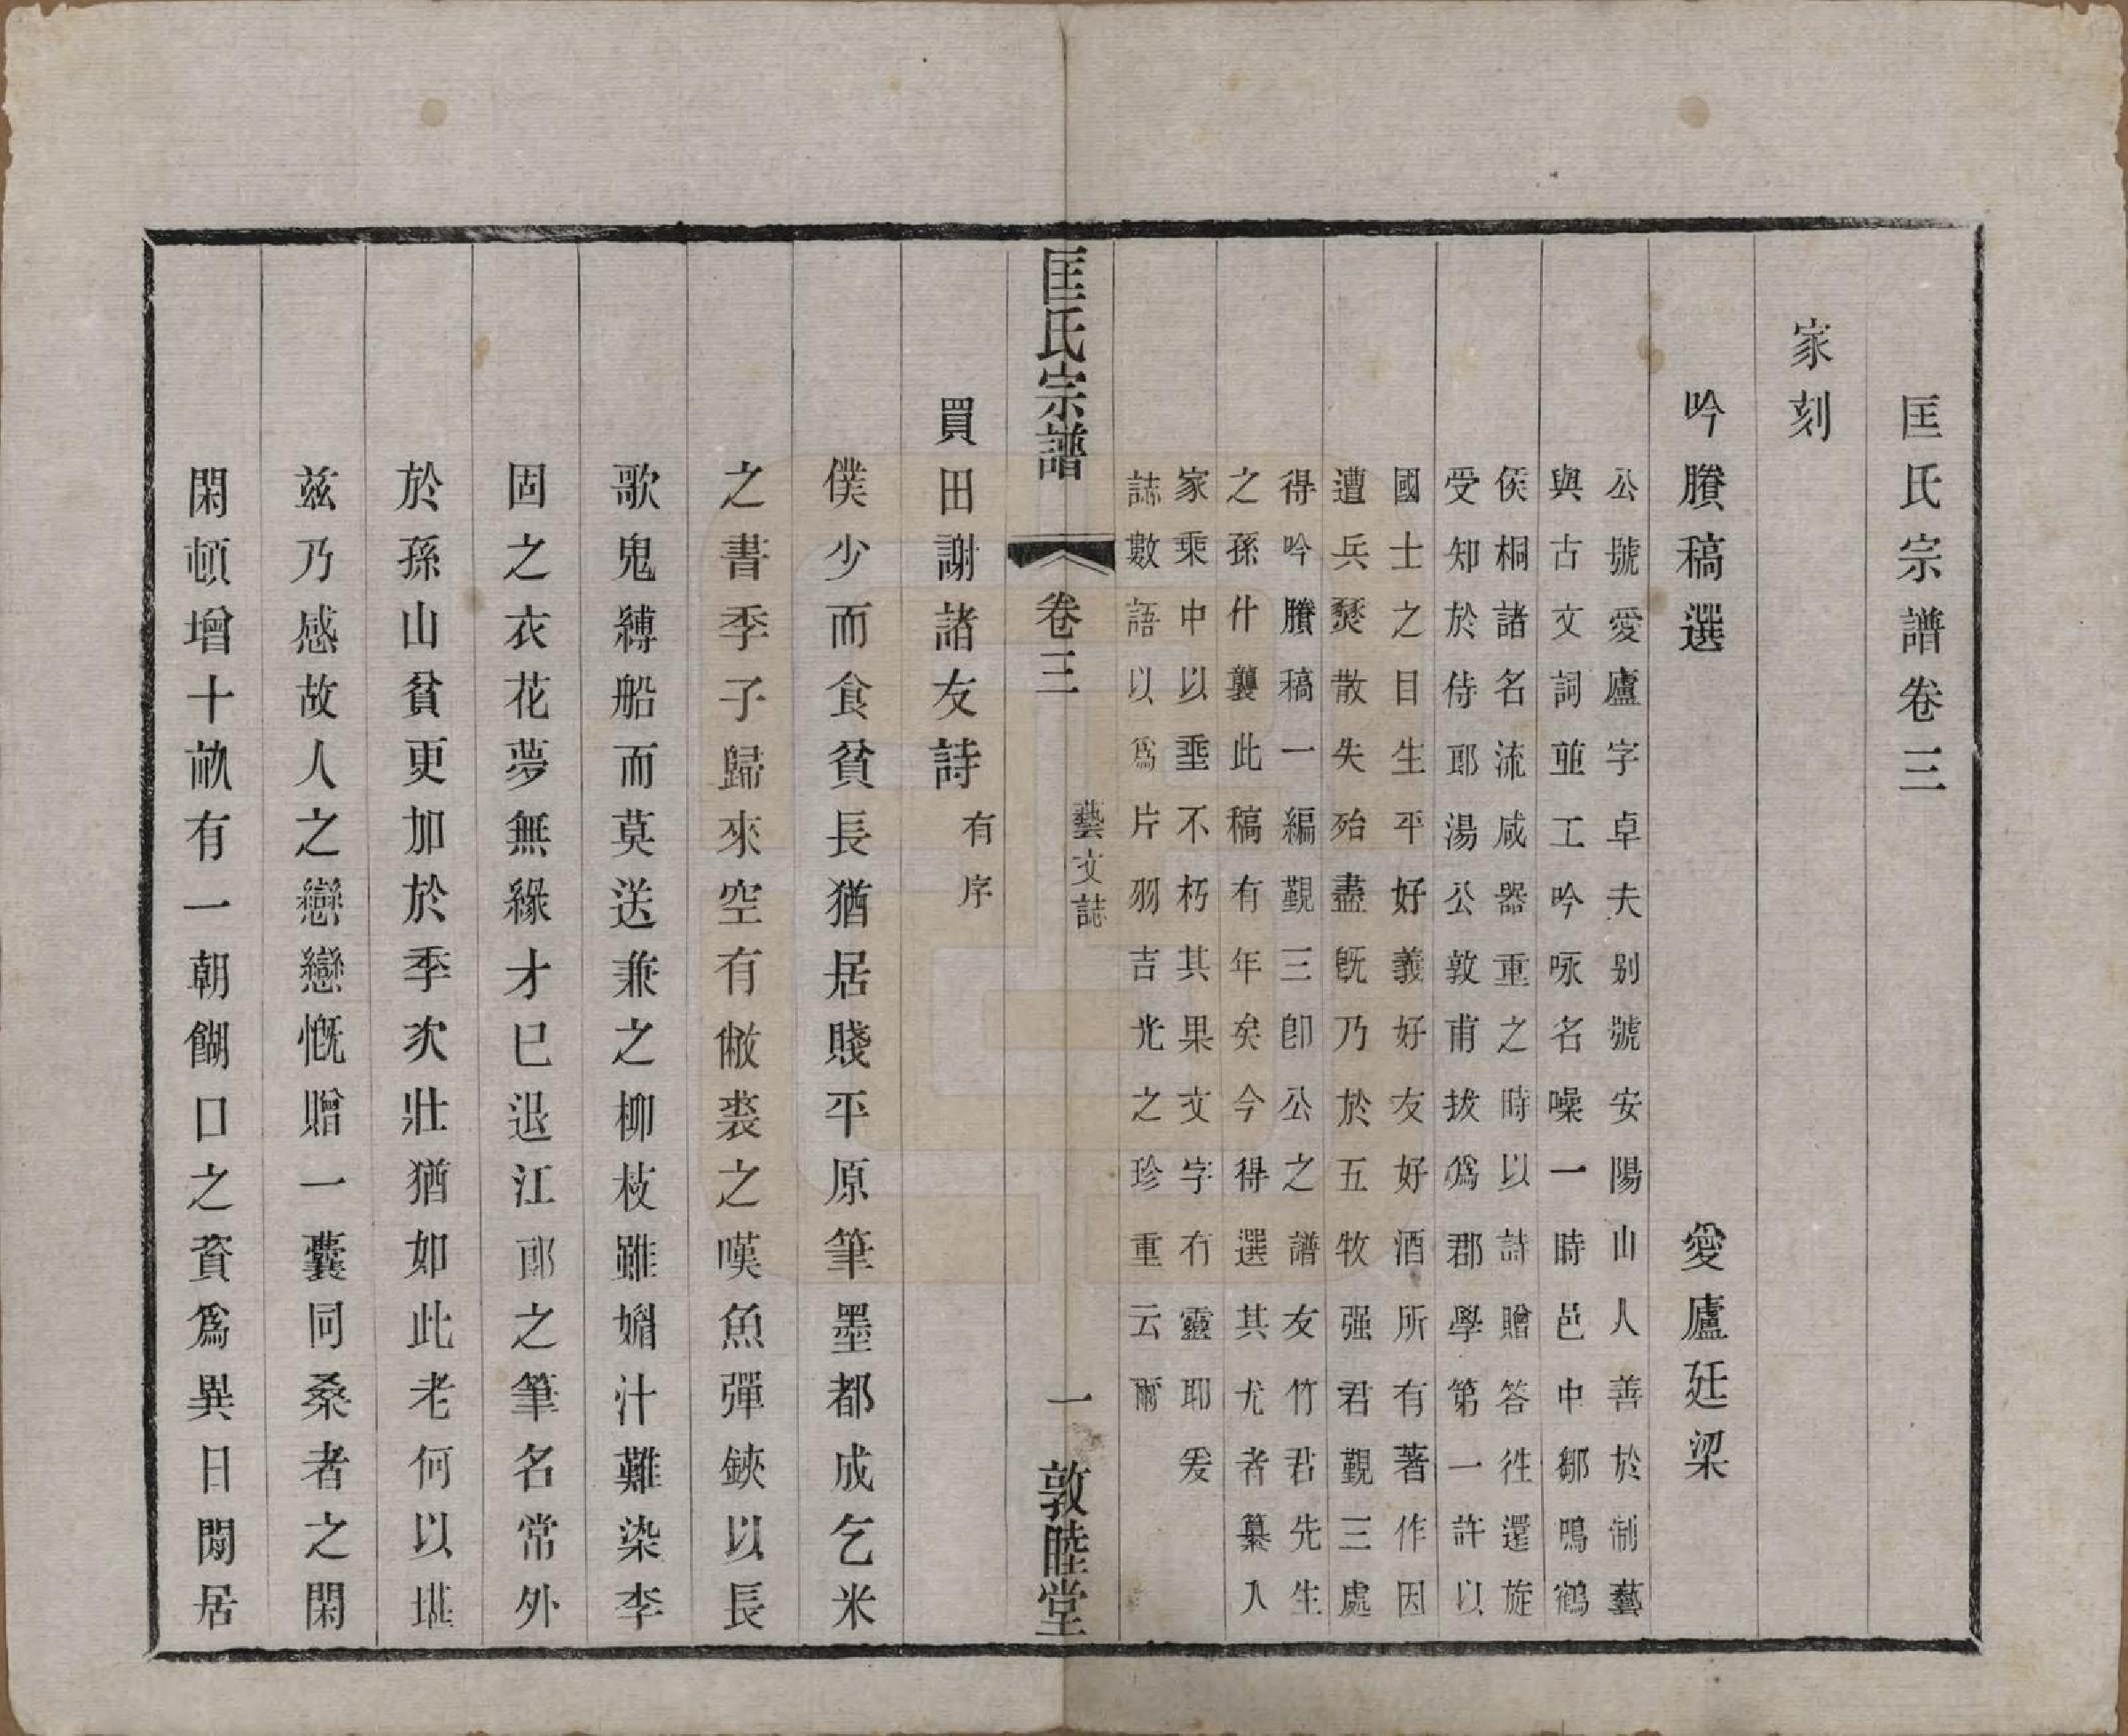 匡氏宗譜卷三
家刻
吟賸稿選 愛廬廷梁
公號愛廬字卓夫别號安陽山人善於制藝
與古文詞並工吟咏名噪一時邑中鄒鳴鶴
侯桐諸名流咸器重之時以詩贈答徃還旋
受知於侍郎湯公敦甫拔爲郡學第一許以
國士之目生平好義好友好酒所有著作因
遭兵燹散失殆盡旣乃於五牧强君覲三處
得吟賸稿一編覲三卽公之譜友竹君先生
之孫什襲此稿有年矣今得選其尤者纂入
家乘中以垂不朽其果文字有靈耶爰
誌數語以爲片羽吉光之珍重云爾
匡氏宗譜 卷三 藝文誌 一 敦睦堂
買田謝諸友詩 有序
僕少而食貧長猶居賤平原筆墨都成乞米
之書季子歸來空有敝裘之嘆魚彈鋏以長
歌鬼縛船而莫送兼之柳枝雖媚汁難染李
固之衣花夢無緣才已退江郎之筆名常外
於孫山貧更加於季次壯猶如此老何以堪
兹乃感故人之戀戀慨贈一囊同桑者之閑
閑頓增十畝有一朝餬口之資爲異日閒居